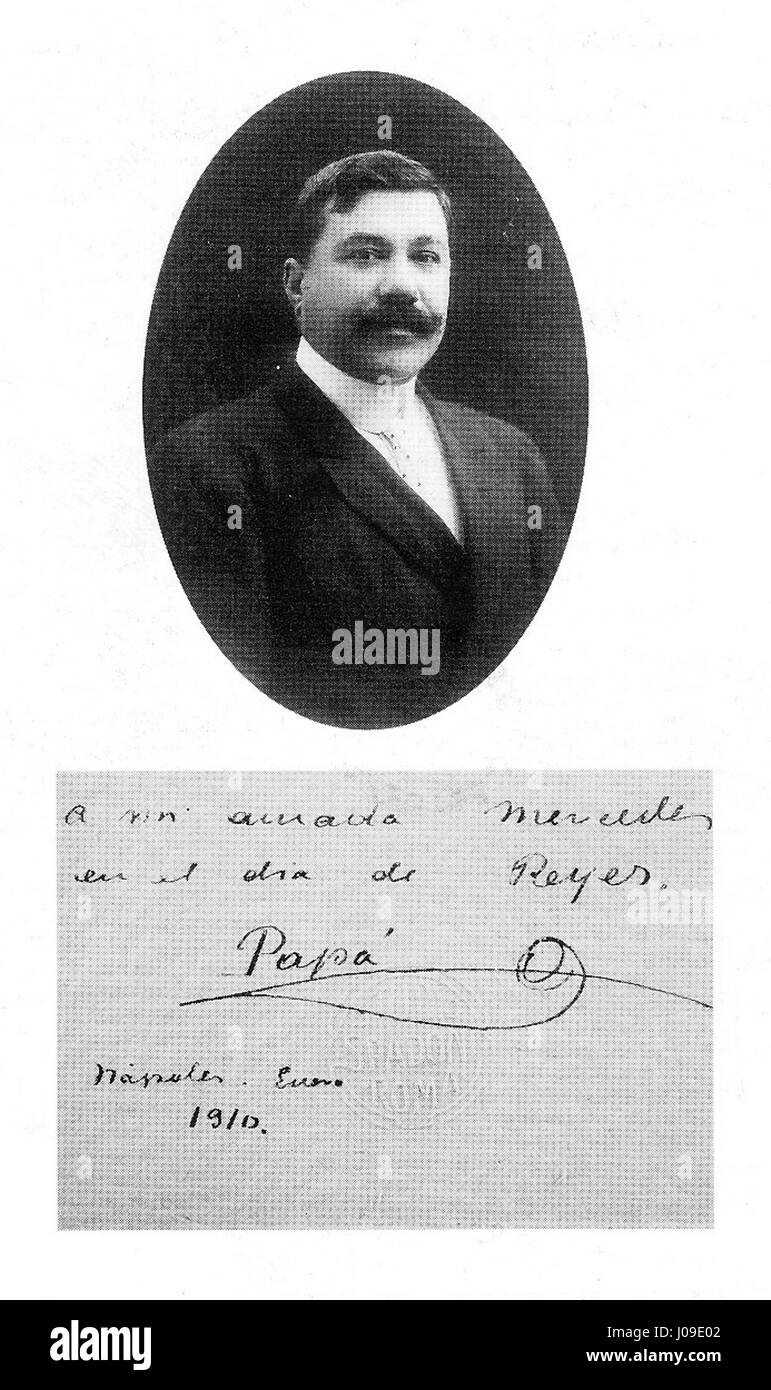 alamy
a mi amada Mercedes
en el dia de Reyes.
Papá
Nápoles. Enero
1910.
alamy
Image ID: J09E02
www.alamy.com